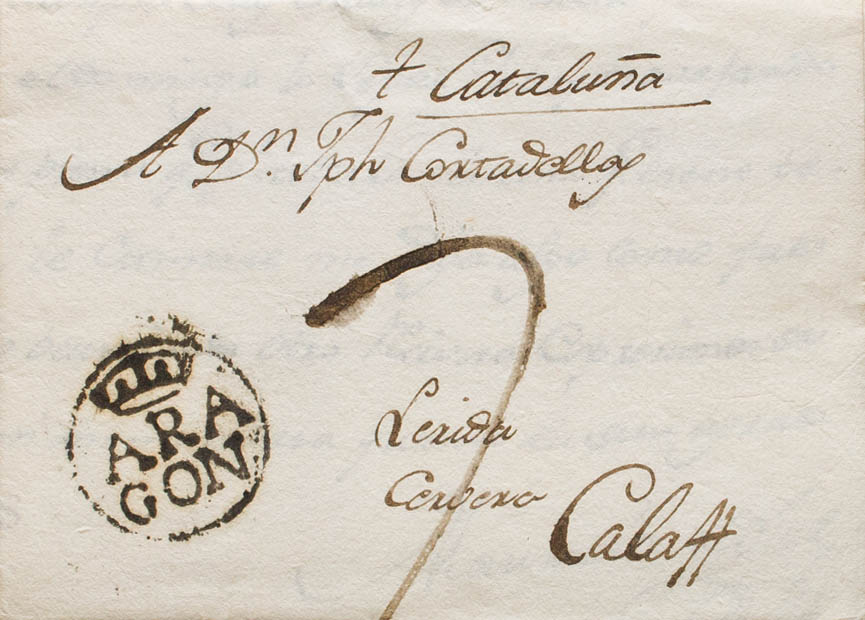 + Cataluña
A Dn. Jph Cortadellas
7
ARA
GON
Lerida
Cervera
Calaff